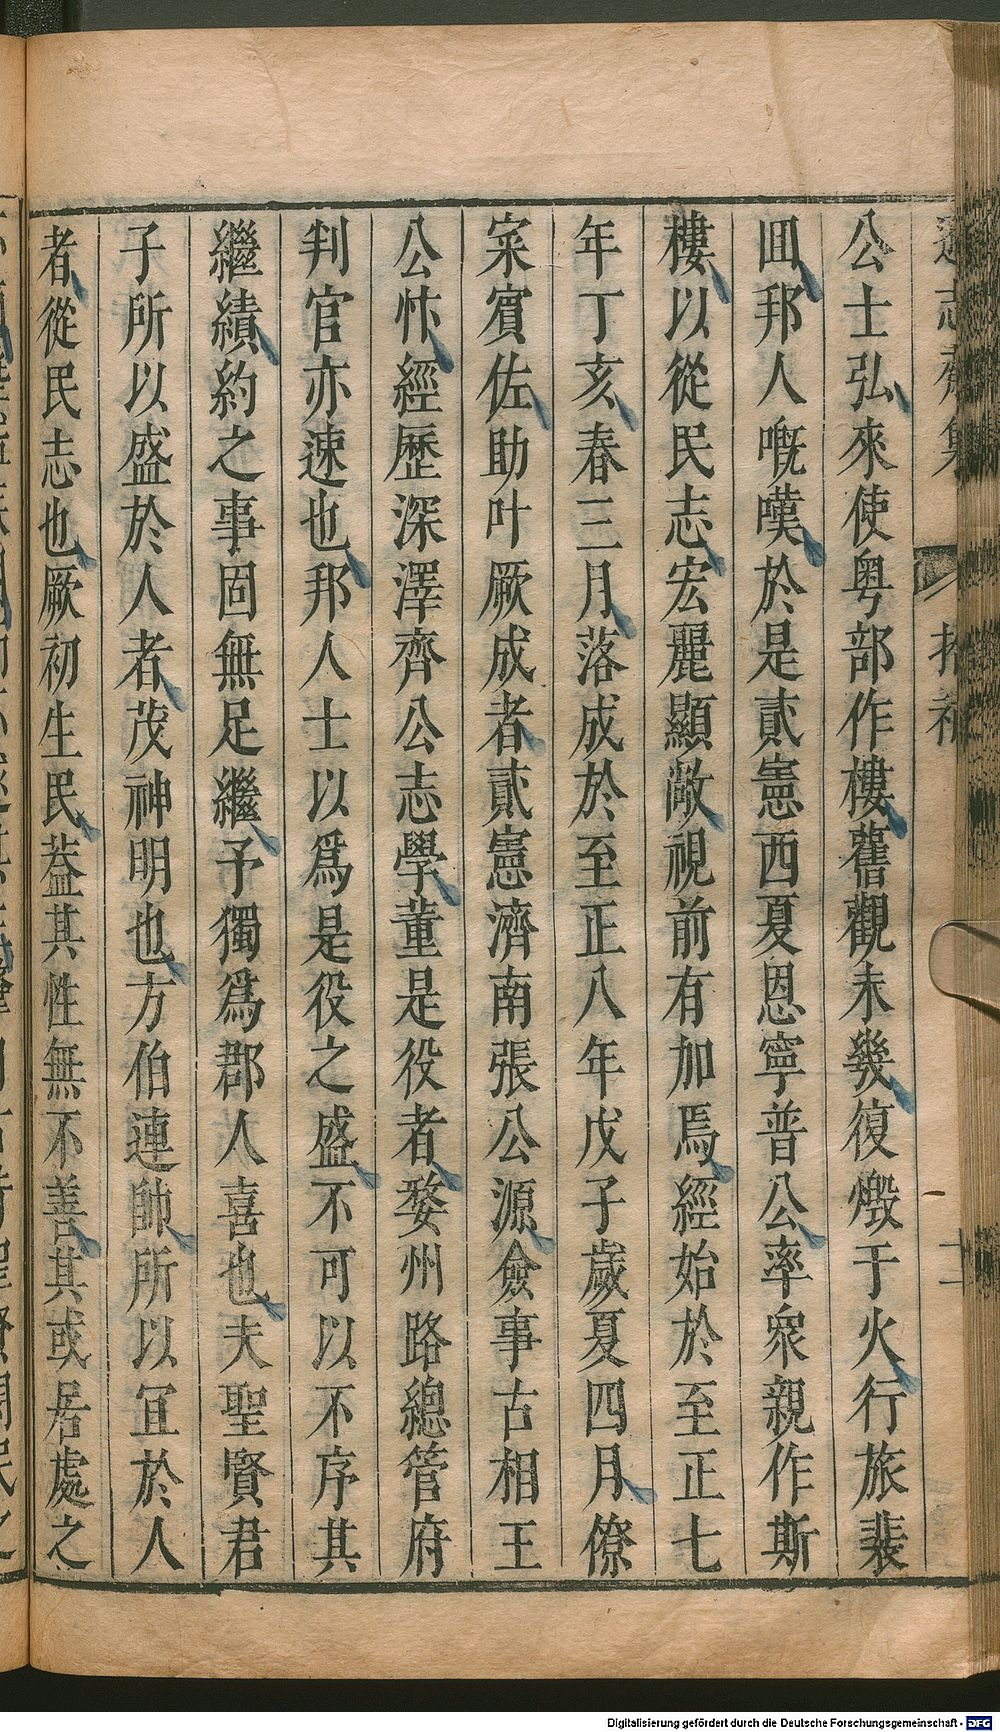 公士弘來使粤部作樓舊觀未幾復燬于火行旅裴
囬邦人嘅嘆於是貳憲西夏恩寧普公率衆親作斯
樓以從民志宏麗顯敞視前有加焉經始於至正七
年丁亥春三月落成於至正八年戊子歲夏四月僚
寀賓佐助叶厥成者貳憲濟南張公源僉事古相王
公怵經歷深澤齊公志學董是役者婺州路總管府
判官亦速也邦人士以爲是役之盛不可以不序其
繼績約之事固無足繼予獨爲郡人喜也夫聖賢君
子所以盛於人者茂神明也方伯連帥所以冝於人
者從民志也厥初生民葢其性無不善其或居處之
Digitalisierung gefördert durch die Deutsche Forschungsgemeinschaft - DFG